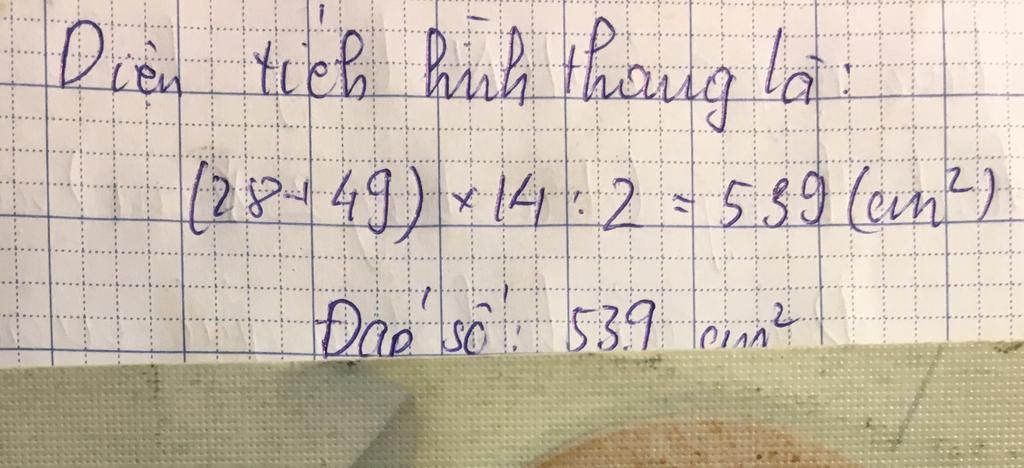 Diện tích hình thang là:
(28+49) × 14 : 2 = 539 (cm²)
Đáp số: 539 cm²